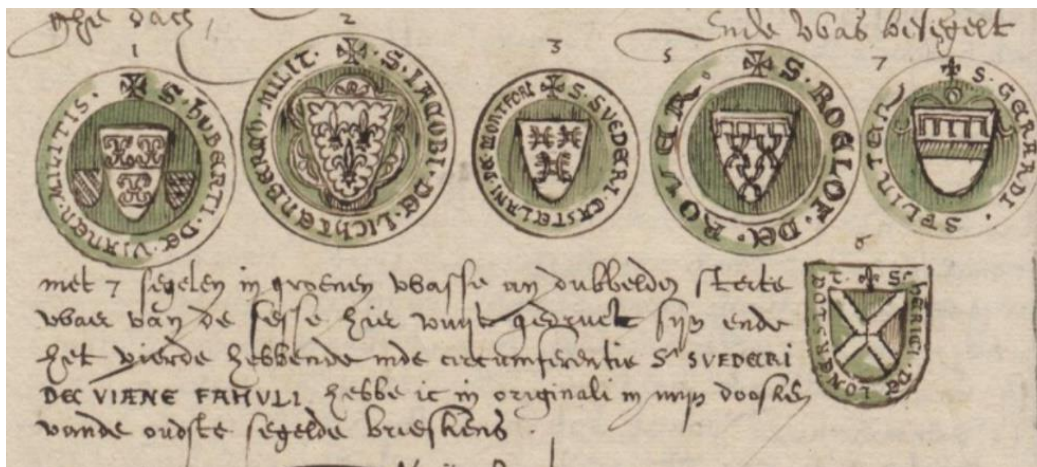 Ende was besegelt
1
2
3
5
7
S. HUBERTI. DE. VIANEN. MILITIS.
S. IACOBI. DE. LICHTENBERCH. MILIT.
S. SVEDERI. CASTELANI. DE. MONTFORT
S. ROELOF. DE. ROVER.
S. GERARDI. SPLINTER
6
S. HERICI. DE. LONERSLOTE
met 7 segelen in groenen wasse an dubbelden sterte
waer van de sesse hier wuijt gedruct sijn ende
het vierde hebbende inde circumferentie S. SVEDERI
DE VIANE FAMULI. hebbe ic in originali in mijn doosken
vande oudste segelde briefkens.